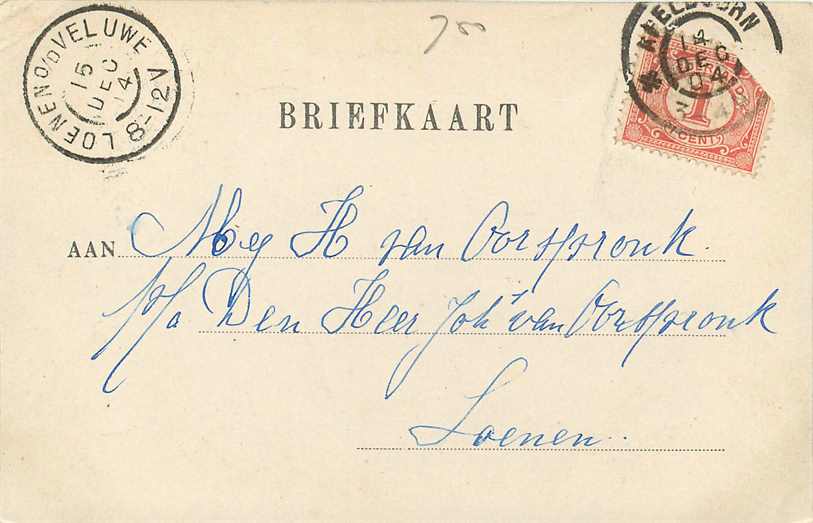 LOENEN O/D VELUWE 8-12V
15
DEC
04
700
APELDOORN
14
DEC
04
3 4
1
CENT
BRIEFKAART
AAN Mej H van Oorspronk.
p/a Den Heer Joh's van Oorspronk
Loenen.